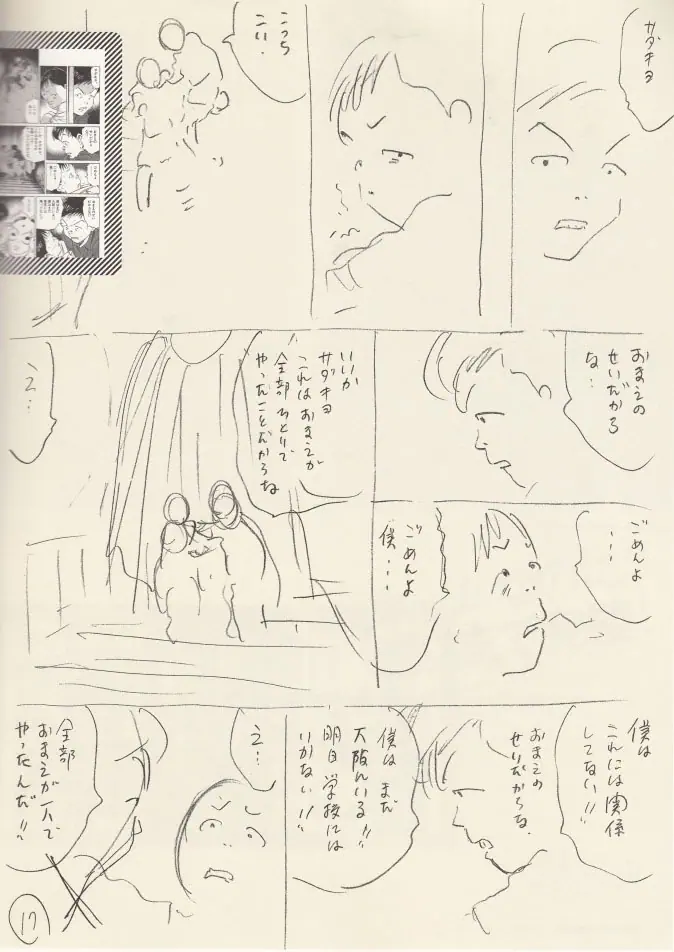 サダキヨ
こっち
こい.
おまえの
せいだから
な..
ごめんよ
...
ごめんよ
僕...
いいか
サダキヨ
これはおまえが
全部ひとりで
やったことだからな
え...
僕は
これには関係
してない!!
おまえの
せいだからな.
僕はまだ
大阪にいる!!
明日学校には
いかない!!
え...
全部
おまえが一人で
やったんだ!!
17